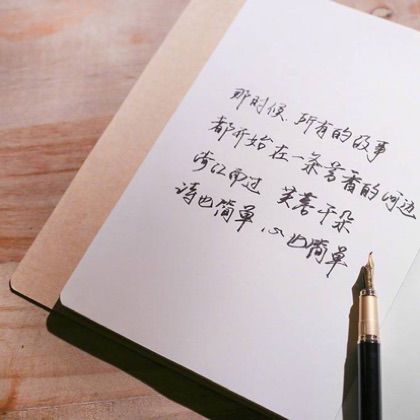 那时候、所有的故事
都开始在一条芳香的河边
涉江而过 芙蓉千朵
诗也简单 心也简单